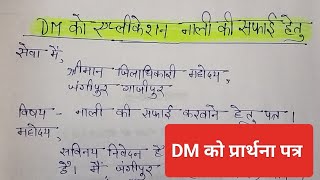 DM को एप्लीकेशन नाली की सफाई हेतु
सेवा में,
श्रीमान जिलाधिकारी महोदय,
जंगीपुर गाजीपुर
विषय - नाली की सफाई करवाने हेतु पत्र।
महोदय,
सविनय निवेदन है
है। मैं जंगीपुर
DM को प्रार्थना पत्र